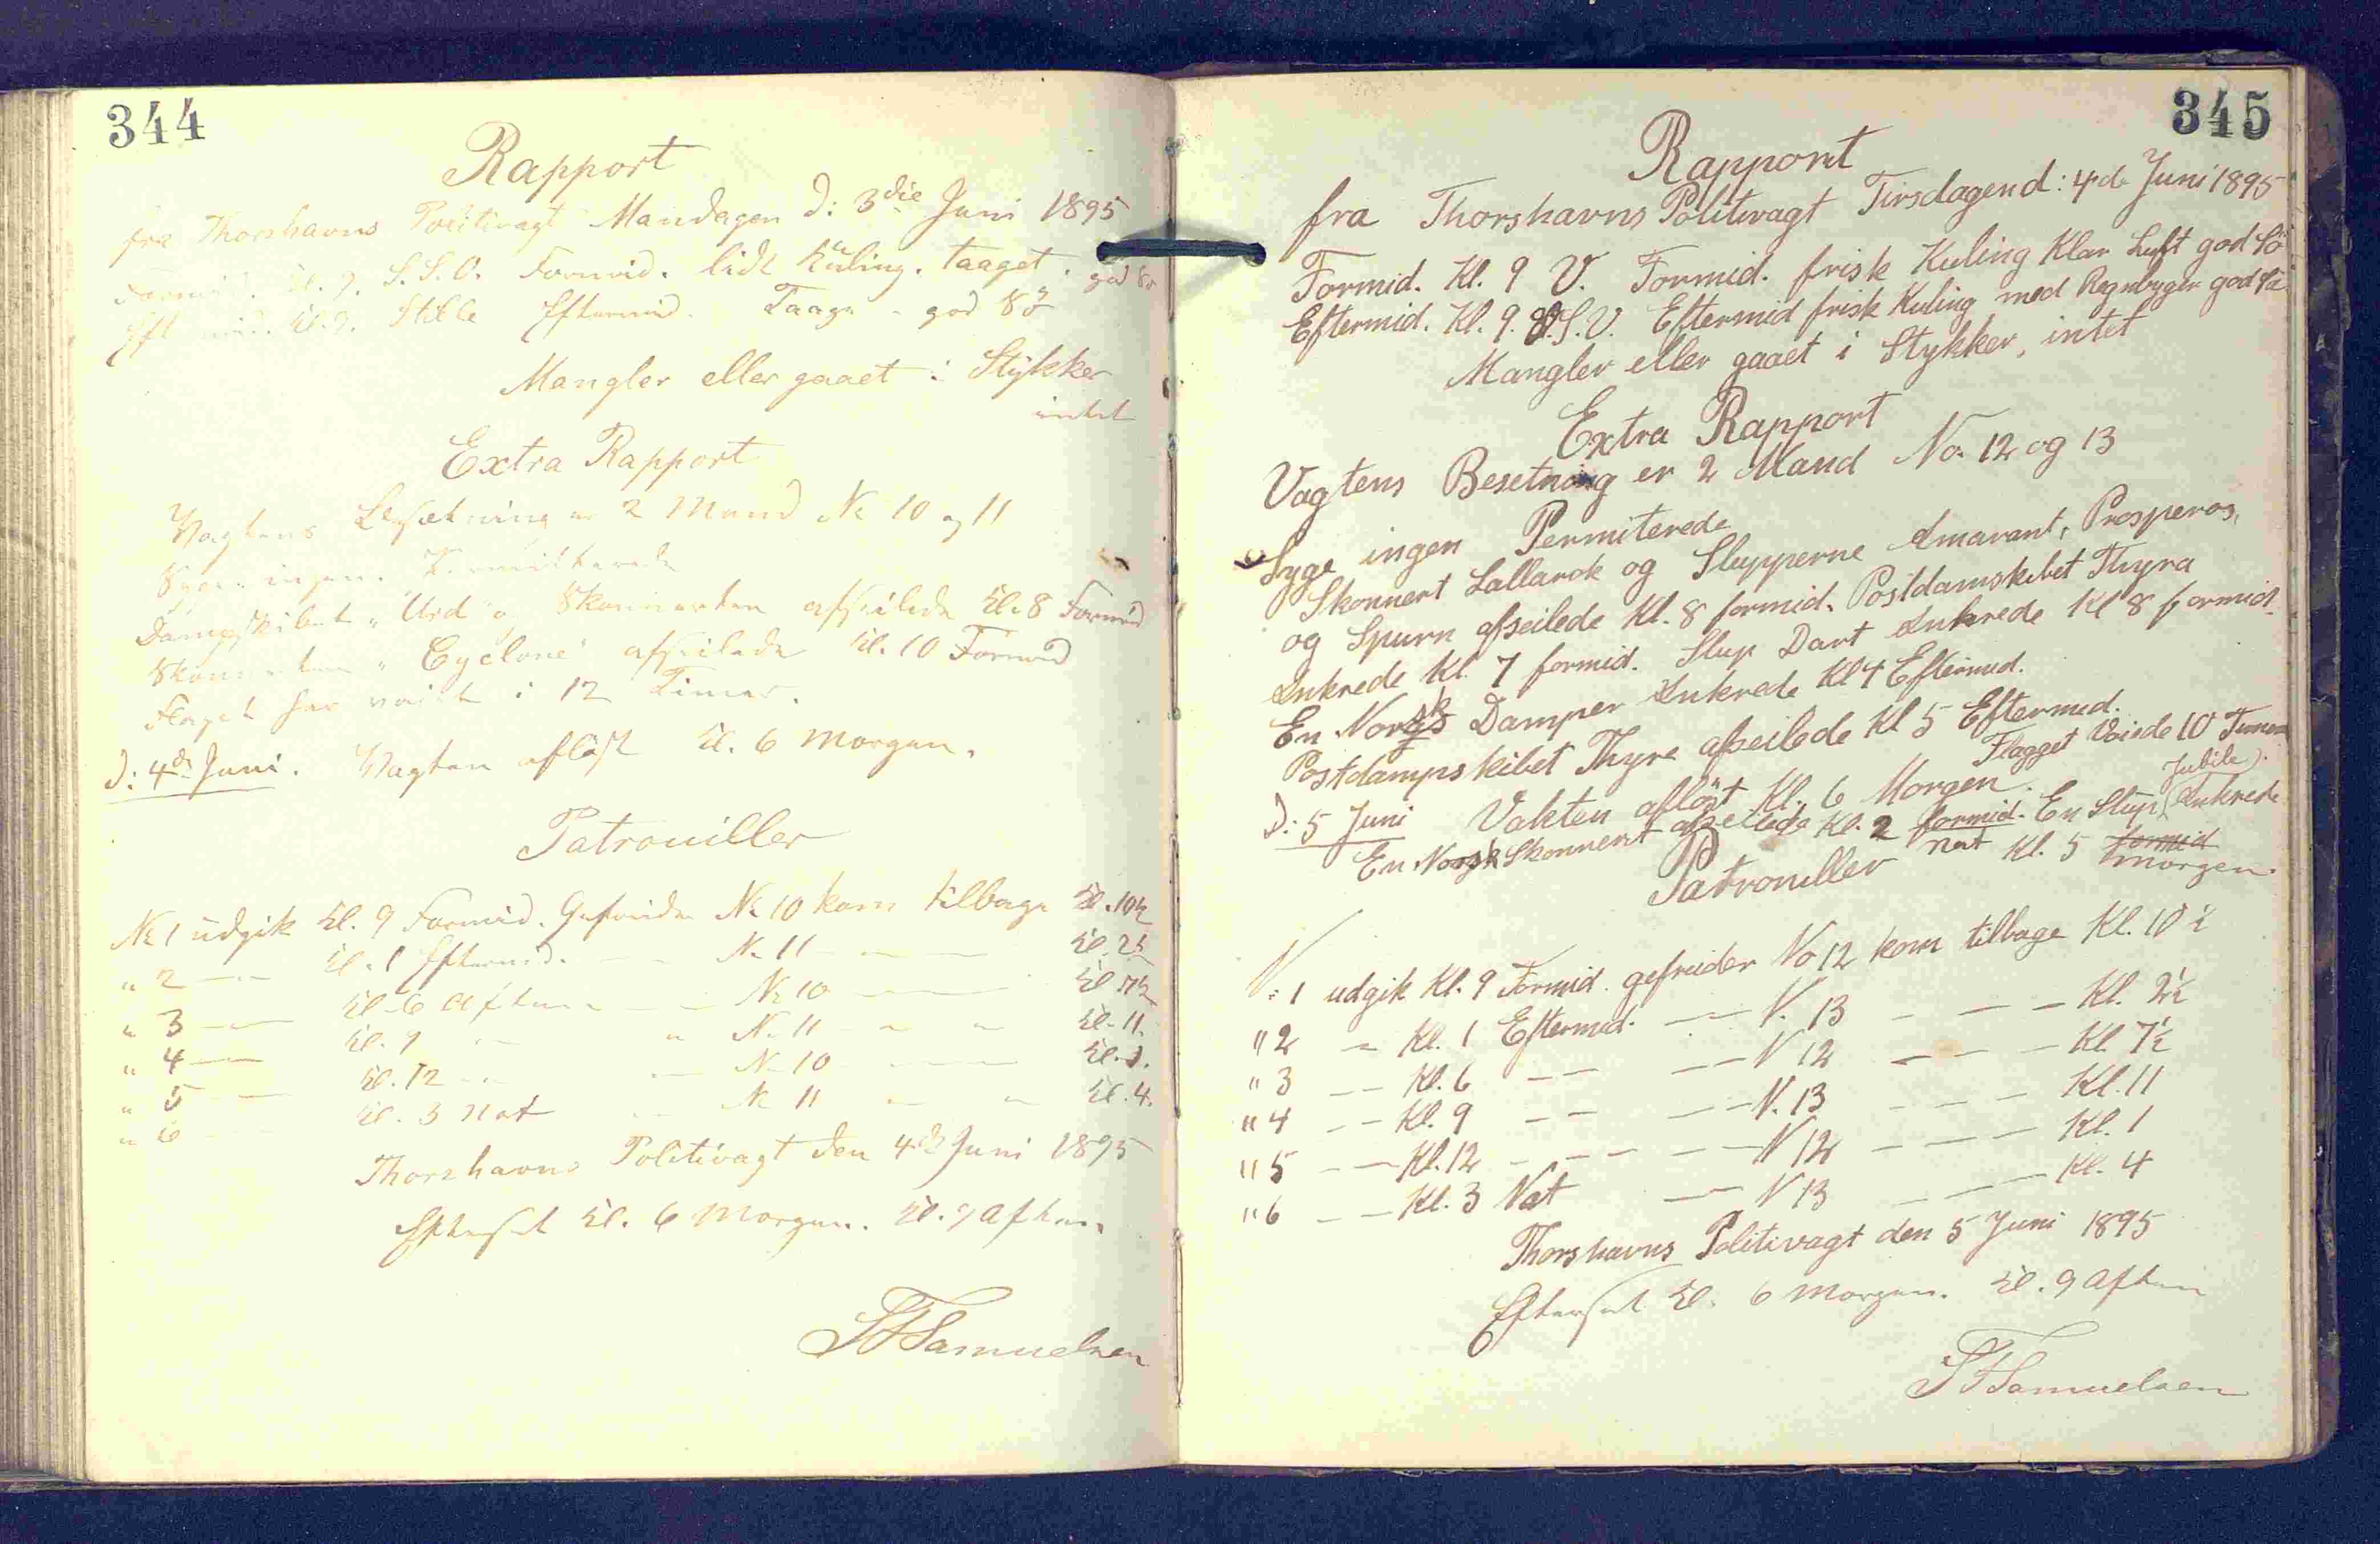 344
Rapport
fra Thorshavns Politivagt Mandagen d: 3die Juni 1895
Formid. Kl. 9. S.S.O. Formid. lidt Kuling. taaget. god Sö
Eftermid. Kl. 9. Stille Eftermid. Taage - god Sö
Mangler eller gaaet i Stykker
intet
Extra Rapport
Vagtens Besætning er 2 Mand No 10 og 11
Syge ingen. Permitterede
Dampskibet "Urd" og Skonnerten afseilede Kl. 8 Formid
Skonnerten "Cyclone" afseilede Kl. 10 Formid
Flaget har vaiet i 12 Timer.
D: 4de Juni. Vagten aflöst Kl. 6 Morgen.
Patrouiller
No 1 udgik Kl. 9 Formid. Gefreider No 10 kom tilbage Kl. 10½
" 2 — — Kl. 1 Eftermid. — — No 11 — — Kl. 2½
" 3 — — Kl. 6 Aften — — No 10 — — Kl. 7½
" 4 — — Kl. 9 — " No 11 — — Kl. 11.
" 5 — — Kl. 12 — — No 10 — — Kl. 1.
" 6 — — Kl. 3 Nat — No 11 — — Kl. 4.
Thorshavns Politivagt den 4de Juni 1895
Efterset Kl. 6 Morgen. Kl. 9 Aften
Samuelsen
345
Rapport
fra Thorshavns Politivagt Tirsdagen d: 4de Juni 1895
Formid. Kl. 9 V. Formid. frisk Kuling Klar Luft god Sö
Eftermid. Kl. 9. S.V. Eftermid frisk Kuling med Regnbyger god Sö
Mangler eller gaaet i Stykker, intet
Extra Rapport
Vagtens Besetning er 2 Mand No. 12 og 13
Syge ingen Permiterede
Skonnert Lallarok og Slupperne Amarant, Prosperos,
og Spurn afseilede Kl. 8 formid. Postdamskibet Thyra
Ankrede Kl. 7 formid. Slup Dart Ankrede Kl 8 formid.
En Norsk Damper Ankrede Kl 4 Eftermid.
Postdampskibet Thyre afseilede Kl 5 Eftermid.
Flagget Vaiede 10 Timer
D: 5 Juni Vakten aflöst Kl. 6 Morgen.
Jubile).
En Norsk Skonnert afseilede Kl. 2 formid. En Slup (Ankrede
nat Kl. 5 formid morgen.
Patrouller
N: 1 udgik Kl. 9 Formid. gefreider No 12 kom tilbage Kl. 10½
" 2 — Kl. 1 Eftermid. — — N. 13 — — — Kl. 2½
" 3 — — Kl. 6 — — — — N 12 — — — Kl 7½
" 4 — — Kl. 9 — — — — N. 13 — — — Kl. 11
" 5 — — Kl. 12 — — — — N 12 — — — Kl. 1
" 6 — — Kl. 3 Nat — — N 13 — — — Kl. 4
Thorshavns Politivagt den 5 Juni 1895
Efterset Kl. 6 Morgen. Kl. 9 Aften
Samuelsen